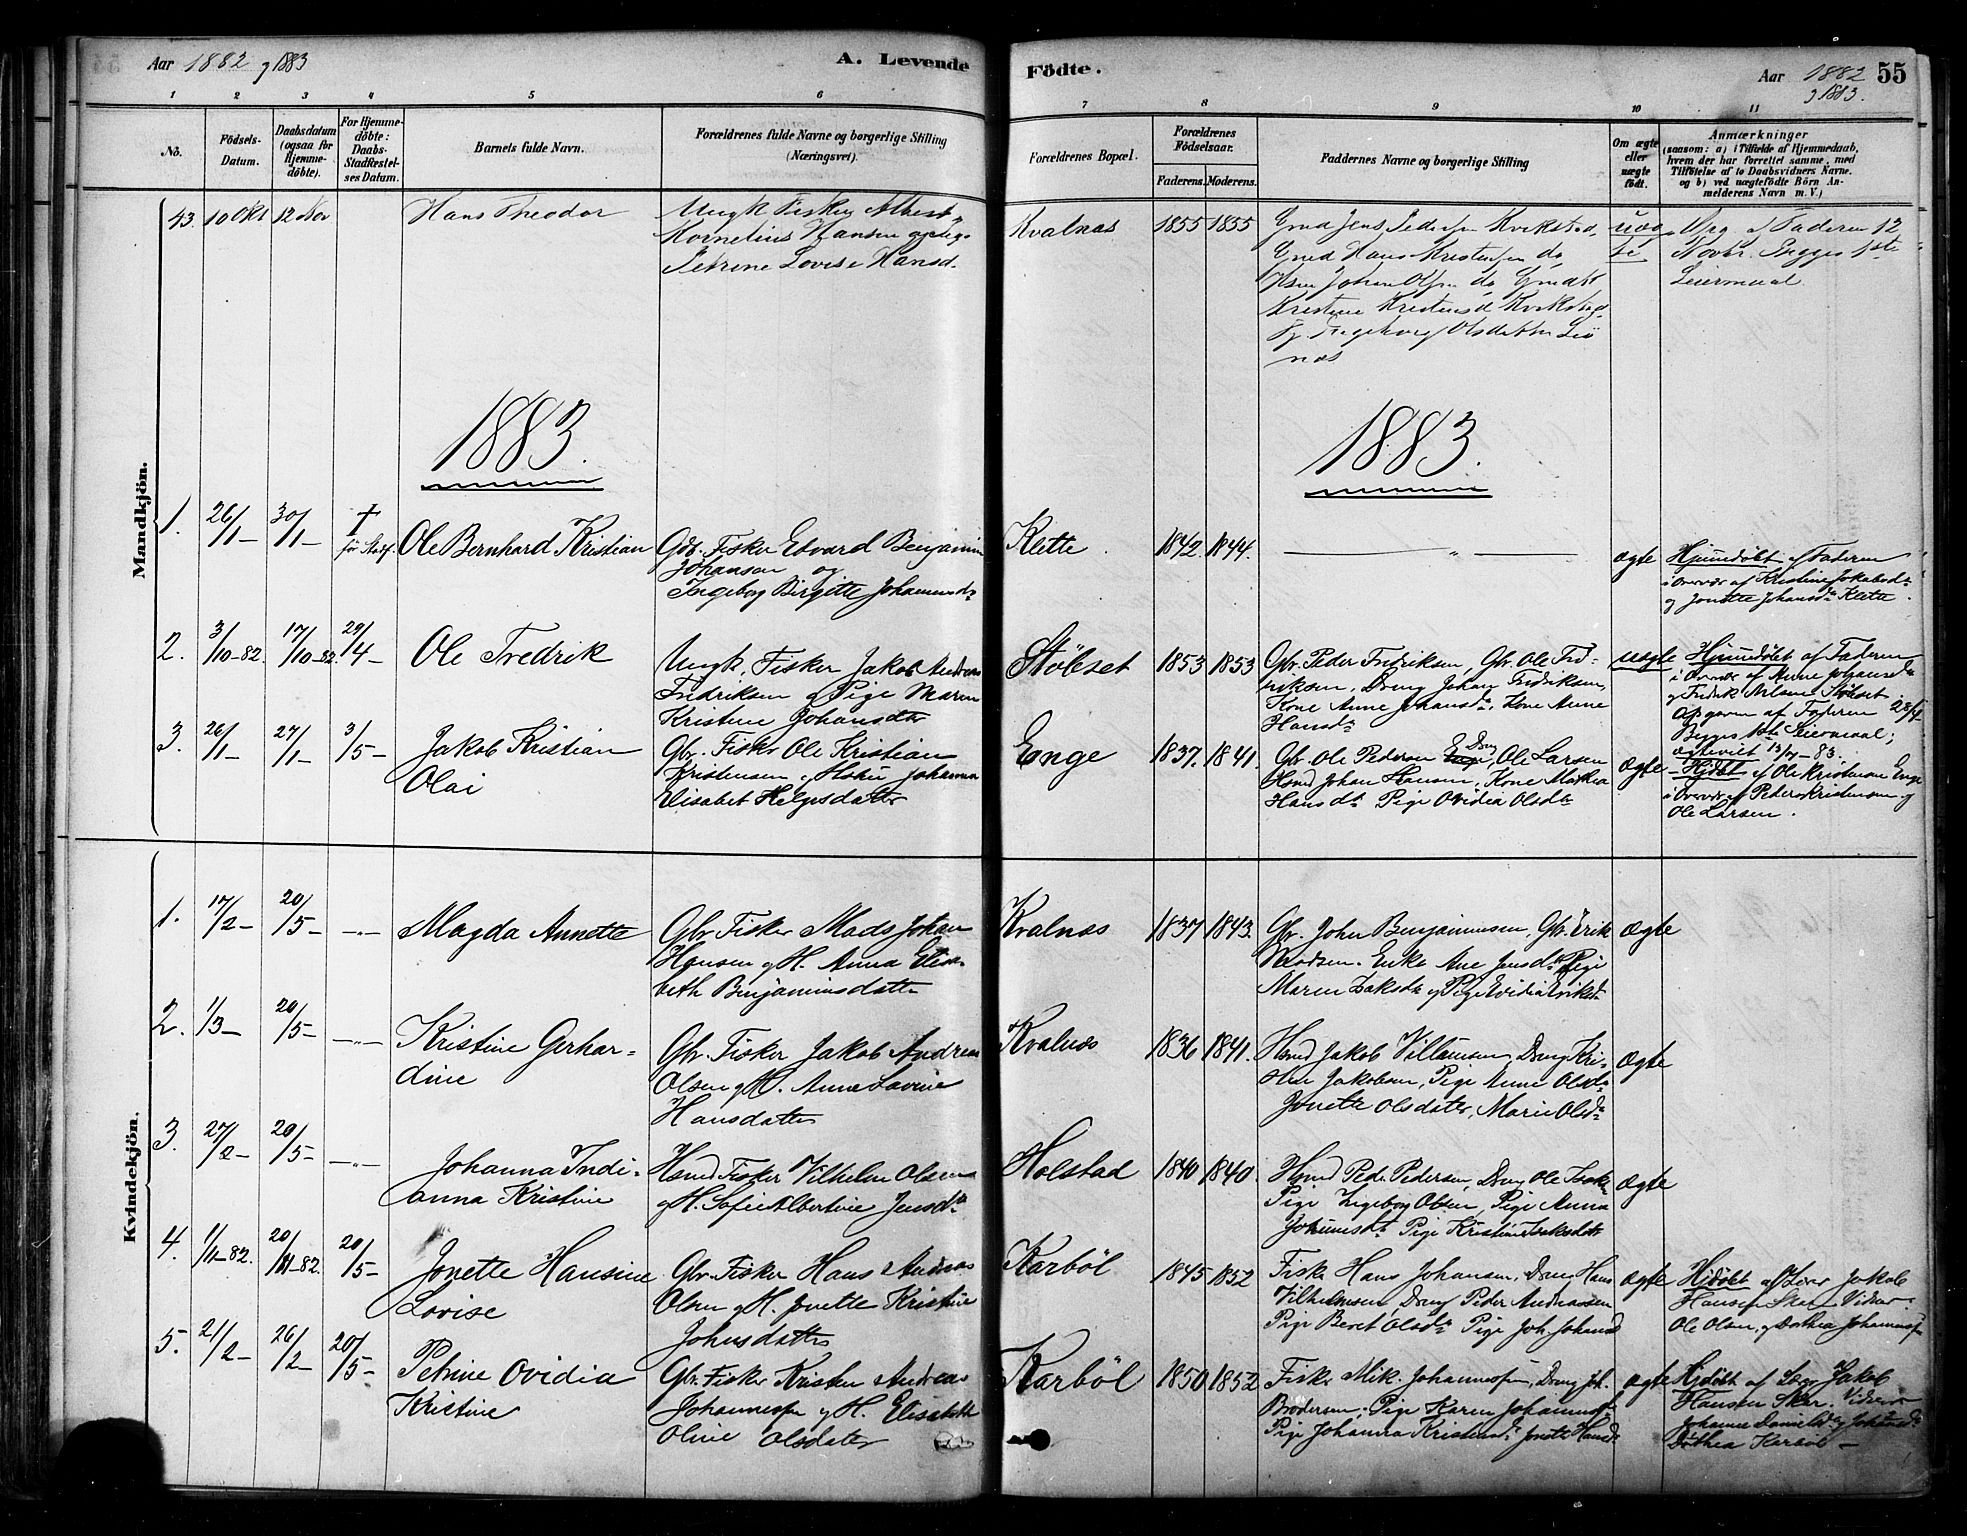 Aar 1882 g 1883
A. Levende Födte.
Aar 1882 55
g 1883.
1 2 3 4 5 6 7 8 9 10 11
No.
Födsels-
Datum.
Daabsdatum
(ogsaa for
Hjemme-
döbte).
For Hjemme-
döbte:
Daabs-
Stadfæstel-
ses Datum.
Barnets fulde Navn.
Forældrenes fulde Navne og borgerlige Stilling
(Næringsvei).
Forældrenes Bopæl.
Forældrenes
Födselsaar.
Faderens. Moderens.
Faddernes Navne og borgerlige Stilling
Om ægte
eller
uægte
født.
Anmærkninger
(saasom: a) i Tilfælde af Hjemmedaab,
hvem der har forrettet samme, med
Tilföielse af to Daabsvidners Navne.
og b) ved uægtefödte Börn An-
melderens Navn m. V.)
Mandkjön.
43. 10 Okt 12 Nov
Hans Theodor
Ungk Fisker Albert
Kornelius Hansen og
Petrine Lovise Hansd.
Kvalnæs
1855 1855
Gmd Jens Pedersen Kvikstad,
Gmd Hans Kristensen do
Hsm Johan Olsen do
Kristine Kristensd Kvikstad
Ingeborg Olsdatter
næs
Faderen 12
Novbr. Begges 1ste
Leiermaal
1883.
1883.
1. 26/1- 30/1- †
Ole Bernhard Kristian
Gbr. Fisker Edvard Benjamin
Johansen og
Ingeborg Birgitte Johannesd.
Klette.
1842. 1844.
— „ —
ægte
Hjemmedøbt af Faderen
i Overvær af Kristine Jakobsd.
og Jonette Johansd. Klette.
2. 3/10-82. 17/10-82. 29/4-
Ole Fredrik
Ungk. Fisker Jakob Andreas
Fredriksen g Pige Maren
Kristine Johansdatter
Stöbset
1853 1853
Gbr. Peder Fredriksen, Gbr. Ole Fred-
riksen, Dreng Johan Fredriksen,
Kone Anne Johansd., Kone Anne
Hansd.
uægte
Hjemmedøbt af Faderen
i Overvær af Anne Johansd
g Fredrik Stöbset
Opgiven af Faderen 28/4
Begges 1ste Leiermaal;
ægteviet 13/7-83.
3. 26/1- 27/1- 3/5-
Jakob Kristian
Olai
Gbr. Fisker Ole Kristian
Kristensen g Hustru Johanna
Elisabet Helgesdatter
Enge
1837. 1841.
Gbr. Ole Pedersen Dreng Ole Larsen
Hsmd Johan Hansen, Kone Martha
Hansdt. Pige Ovidia Olsdt.
ægte
Hjdøbt af Ole Kristensen Enge
i Overvær af Peder Kristensen g
Ole Larsen.
Kvindekjön.
1. 17/2- 20/5- —„—
Magda Annette
Gbr Fisker Mads Johan
Hansen g H. Anna Elisa-
beth Benjaminsdatter
Kvalnæs
1837 1843.
Gbr. Johen Benjaminsen, Gbr. Erik
Madsen. Enke Ane Jensd. Pige
Maren Isaksdt. g Pige Ovidia Eriksd.
ægte
2. 1/3- 20/5- —„—
Kristine Gerhar-
dine
Gbr. Fisker Jakob Andreas
Olsen g H. Anne Lavine
Hansdatter
Kvalnæs
1836 1841.
Hsmd Jakob Villumsen, Dreng Kri-
stian Jakobsen, Pige Anne Olsdt.
Jonette Olsdatter, Marie Olsd.
ægte
3. 27/2- 20/5- —„—
Johanna Indi-
anna Kristine
Hsmd Fisker Vilhelm Olsen
g H. Sofie Albertine Jensdt.
Holstad
1840 1840.
Hsmd Peder Pedersen, Dreng Ole Isak
Pige Ingeborg Olsen, Pige Anna
Johannesdt. Pige Kristine Isaksdatt
ægte
4. 1/11-82. 20/11-82. 20/5-
Jonette Hansine
Lovise
Gbr. Fisker Hans Andreas
Olsen g H. Jonette Kristine
Johnsdatter
Karböl
1845 1852
Fisker Hans Johansen, Dreng Hans
Vilhelmsen, Dreng Peder Andreassen
Pige Beret Olsd. Pige Joh. Johansd
ægte
Hjdøbt af Lærer Jakob
Hansen Skar. Vidner:
Ole Olsen, g Dorthea Johanness
5. 21/2- 26/2- 20/5-
Petrine Ovidia
Kristine
Gbr. Fisker Kristen Andreas
Johannessen g H. Elisabeth
Oline Olsdatter
Karböl
1850 1852
Fisker Mik. Johannessen, Dreng Joh.
Brodersen, Pige Karen Johannessen
Pige Johanna Kristensd. Jonette Hansd.
ægte
Hjdøbt af Lærer Jakob
Hansen Skar. Vidner
Johanna Danielsd. g
Dorthea Karböl —